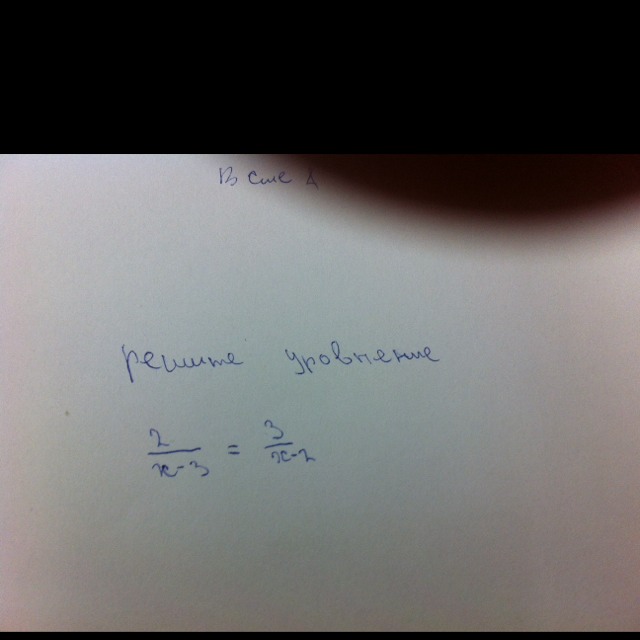 решите уровнение
2/x-3 = 3/x-2